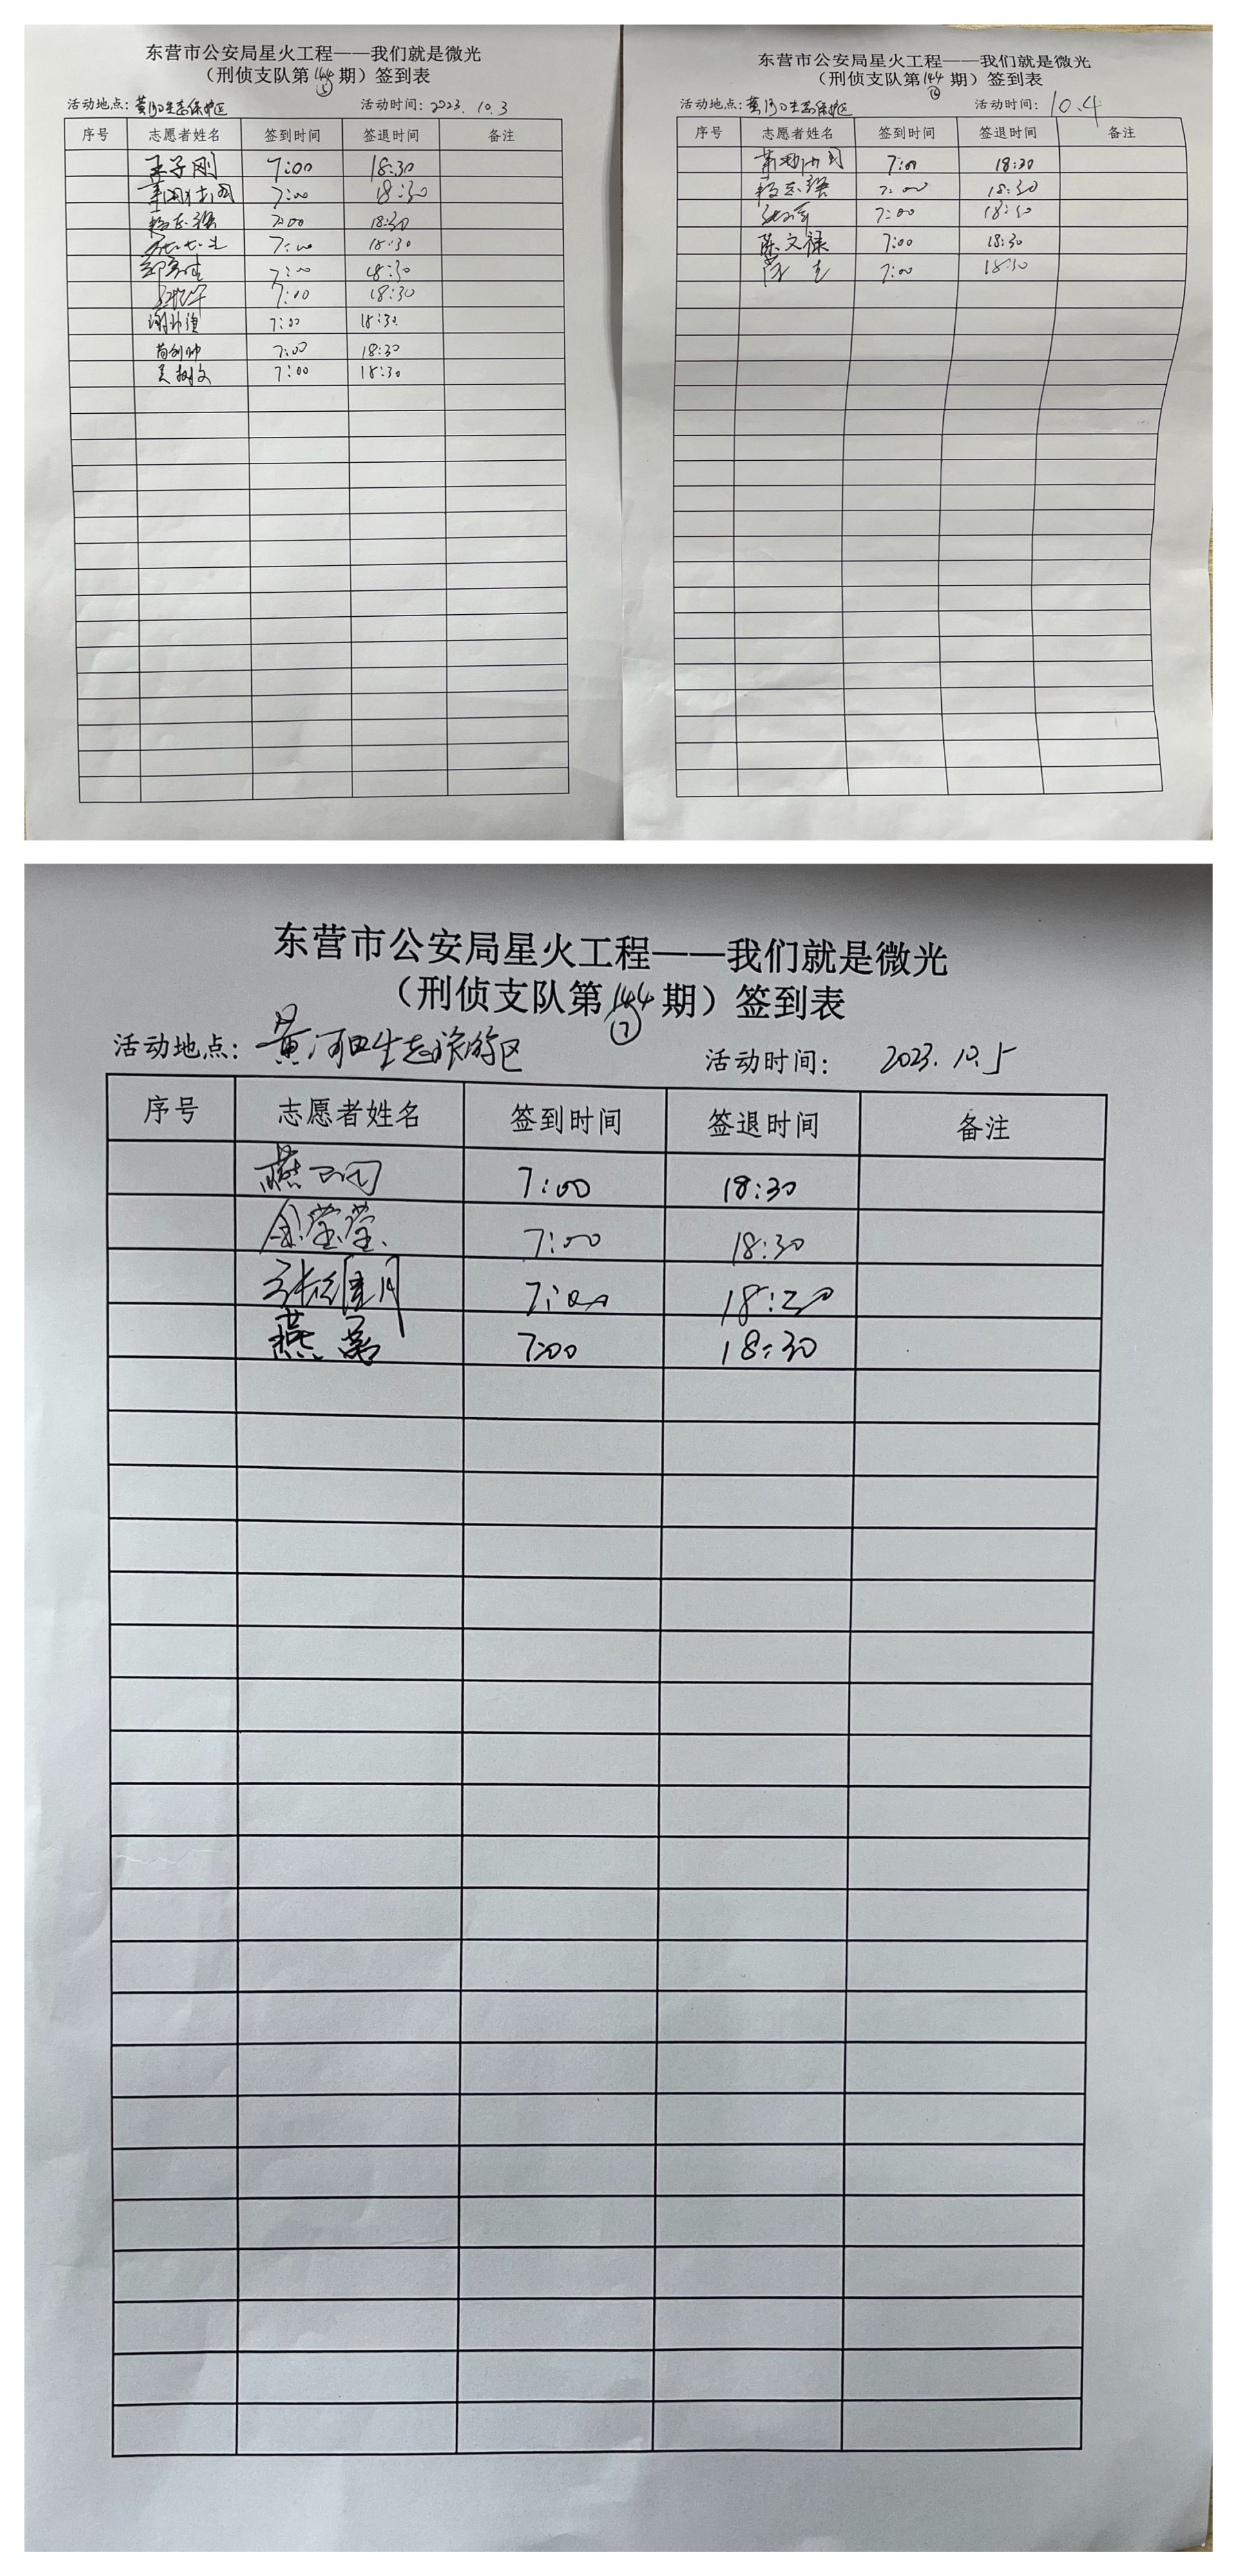 东营市公安局星火工程——我们就是微光
（刑侦支队第144期）签到表
⑤
活动地点：黄河口生态保护区 活动时间：2023.10.3
序号 志愿者姓名 签到时间 签退时间 备注
王子刚 7:00 18:30
7:00 18:30
7:00 18:30
7:00 18:30
7:00 18:30
7:00 18:30
7:00 18:30
7:00 18:30
7:00 18:30
东营市公安局星火工程——我们就是微光
（刑侦支队第144期）签到表
⑥
活动地点：黄河口生态保护区 活动时间：10.4
序号 志愿者姓名 签到时间 签退时间 备注
7:00 18:30
7:00 18:30
7:00 18:30
陈文禄 7:00 18:30
7:00 18:30
东营市公安局星火工程——我们就是微光
（刑侦支队第144期）签到表
⑦
活动地点：黄河口生态旅游区 活动时间：2023.10.5
序号 志愿者姓名 签到时间 签退时间 备注
7:00 18:30
金莹莹 7:00 18:30
7:00 18:30
燕 7:00 18:30